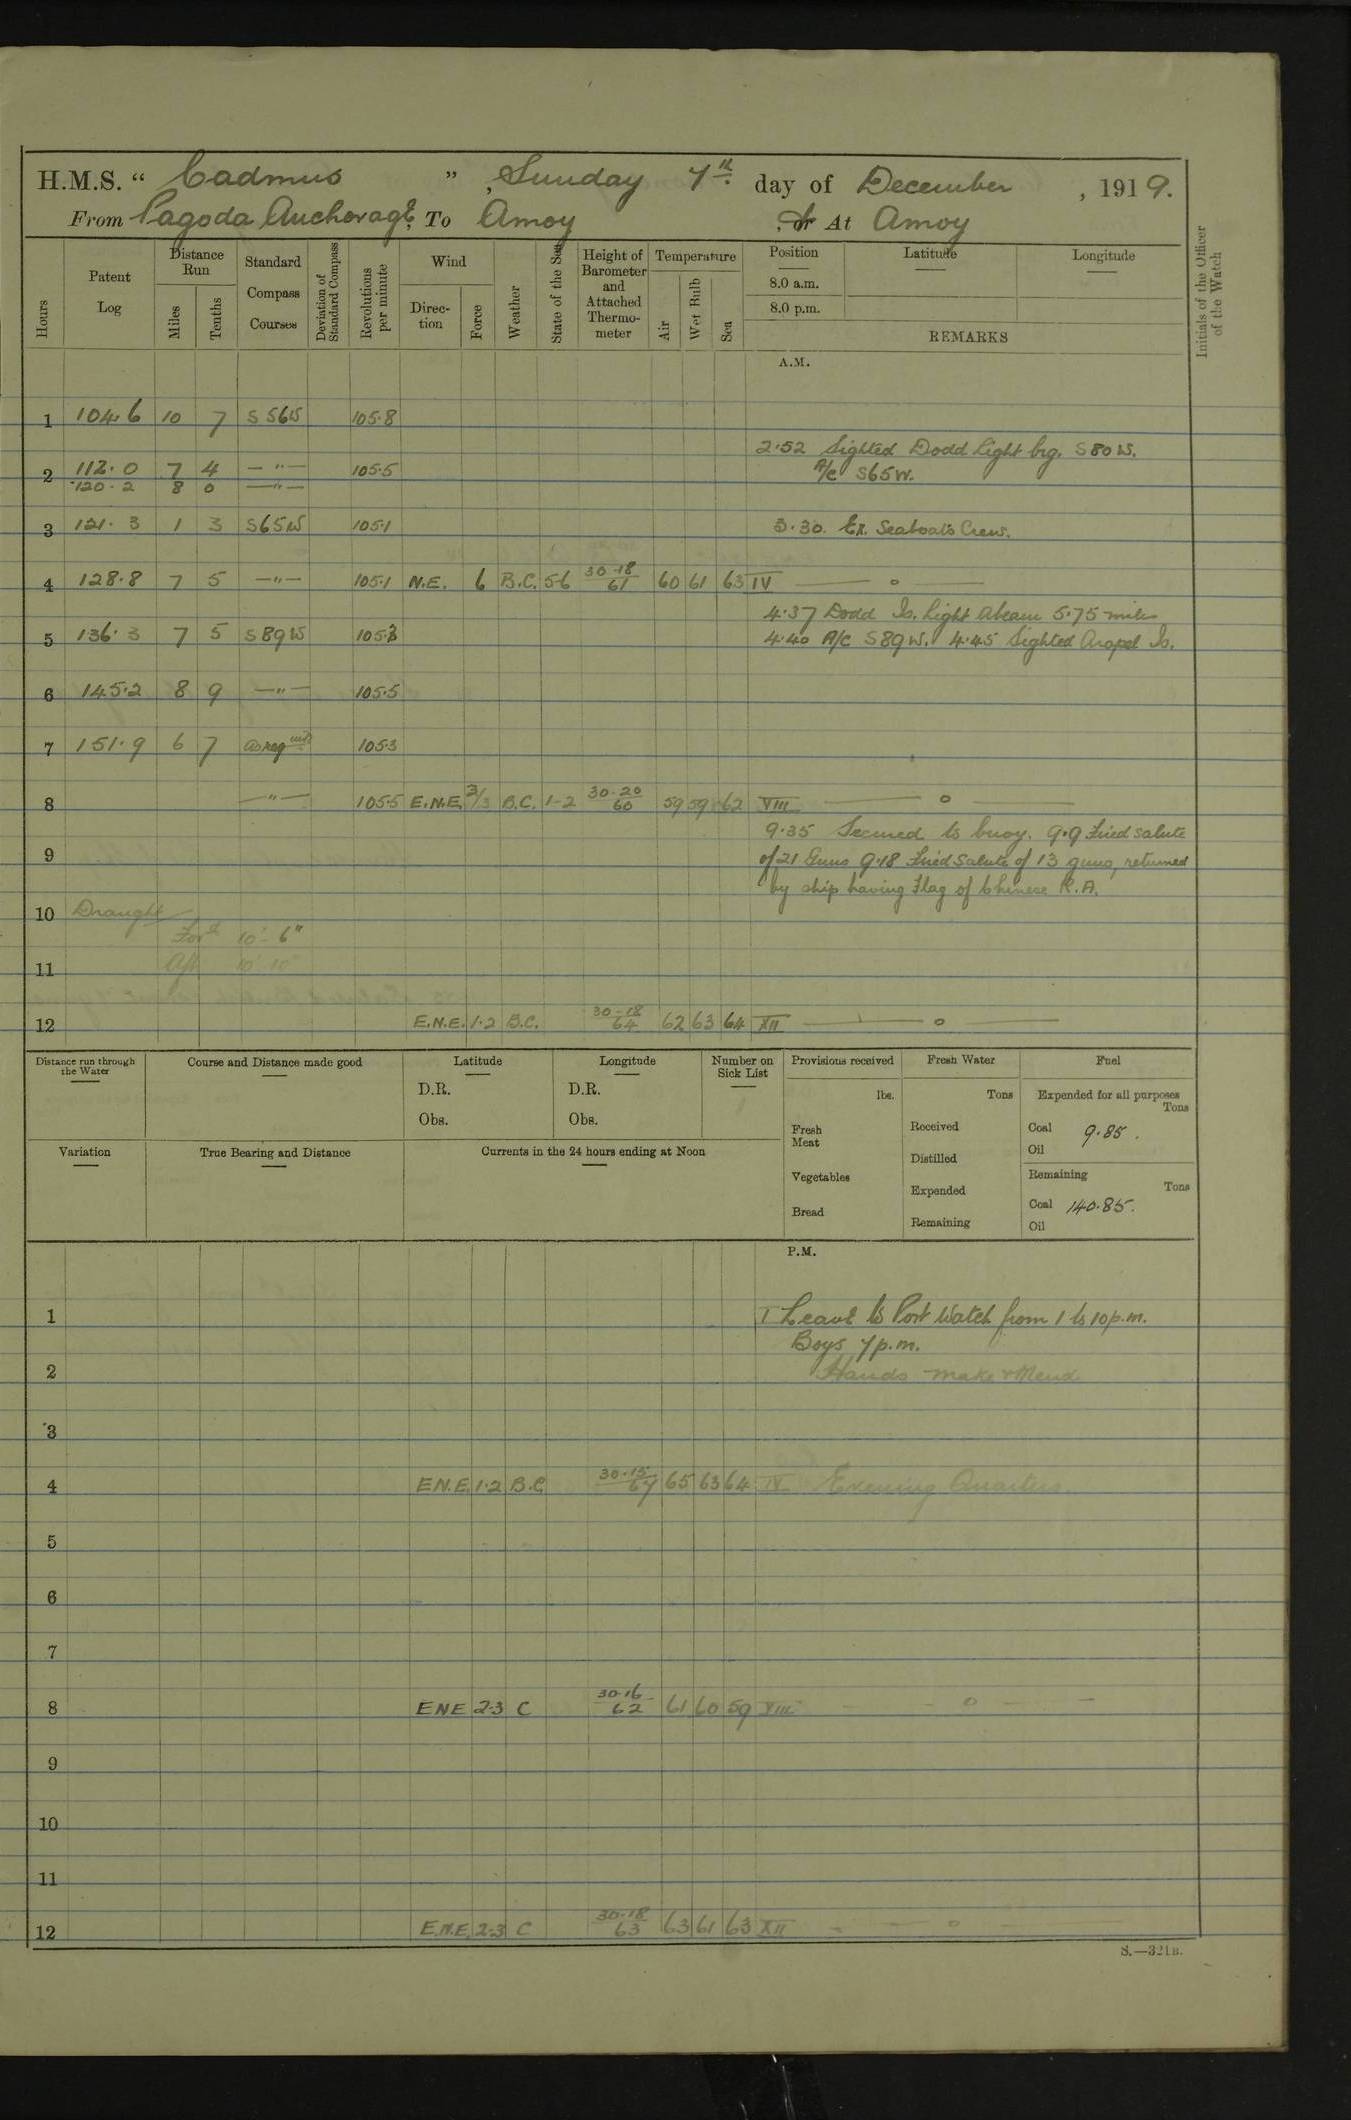 H.M.S. “ Cadmus ” , Sunday 7th day of December , 1919.
From Pagoda Anchorage, To Amoy , or At Amoy
Hours
Patent Log
Distance Run
Miles
Tenths
Standard Compass Courses
Deviation of Standard Compass
Revolutions per minute
Wind
Direc-tion
Force
Weather
State of the Sea
Height of Barometer and Attached Thermo-meter
Temperature
Air
Wet Bulb
Sea
Position
8.0 a.m.
8.0 p.m.
Latitude
Longitude
REMARKS
Initials of the Officer of the Watch
A.M.
1 104.6 10 7 S 56 W 105.8
2.52 Sighted Dodd Light brg. S 80 W.
2 112.0 7 4 — " — 105.5 A/C S65W.
120.2 8 0 — " —
3 121.3 1 3 S65W 105.1 3.30. Ex. Seaboat's Crew.
4 128.8 7 5 — " — 105.1 N.E. 6 B.C. 5-6 30.18/61 60 61 63 IV — o —
4.37 Dodd Is. Light abeam 5.75 miles
5 136.3 7 5 S 89 W 105.3 4.40 A/C S 89 W. 4.45 Sighted Is.
6 145.2 8 9 — " — 105.5
7 151.9 6 7 as reqd 105.3
8 — " — 105.5 E.N.E. 2/3 B.C. 1-2 30.20/60 59 59 62 VIII — o —
9.35 Secured to buoy. 9.9 Fired salute
9 of 21 Guns 9.18 Fired Salute of 13 guns, returned
by ship having Flag of Chinese R.A.
10 Draught
Ford 10' 6"
11 Aft 10' 10"
12 E.N.E. 1.2 B.C. 30.18/64 62 63 64 XII — o —
Distance run through the Water
Course and Distance made good
Latitude
D.R.
Obs.
Longitude
D.R.
Obs.
Number on Sick List
1
Provisions received
lbs.
Fresh Meat
Vegetables
Bread
Fresh Water
Tons
Received
Distilled
Expended
Remaining
Fuel
Expended for all purposes
Tons
Coal 9.85.
Oil
Remaining
Tons
Coal 140.85.
Oil
Variation
True Bearing and Distance
Currents in the 24 hours ending at Noon
P.M.
1 Leave to Port Watch from 1 to 10 p.m.
Boys 7 p.m.
2 Hands make & Mend
3
4 E.N.E. 1.2 B.C. 30.15/67 65 63 64 IV Evening Quarters.
5
6
7
8 ENE 2.3 C 30.16/62 61 60 59 VIII — o —
9
10
11
12 E.N.E. 2.3 C 30.18/63 63 61 63 XII — o —
S.—321B.